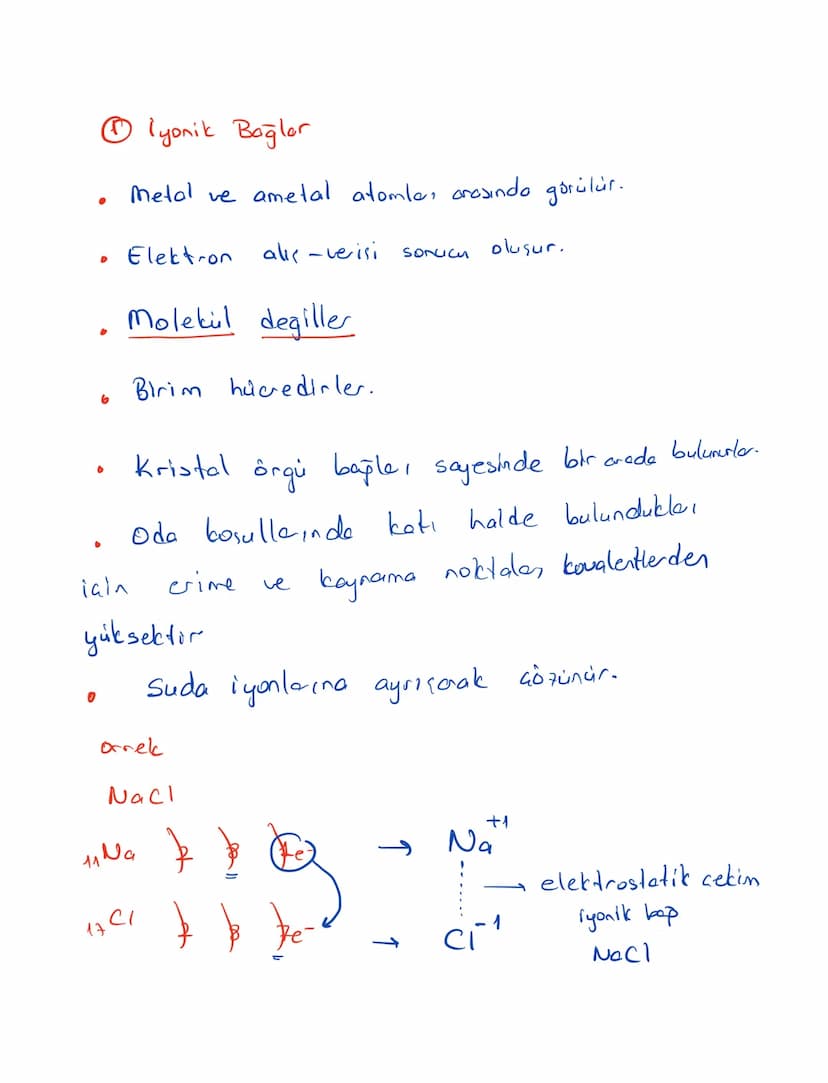 ① İyonik Bağlar
• Metal ve ametal atomları arasında görülür.
• Elektron alış-verişi sonucu oluşur.
• Molekül değiller
• Birim hücredirler.
• Kristal örgü bağları sayesinde bir arada bulunurlar.
• Oda koşullarında katı halde bulundukları
için erime ve kaynama noktaları kovalentlerden
yüksektir
• Suda iyonlarına ayrışarak çözünür.
örnek
NaCl
₁₁Na 2 8 1e⁻ → Na⁺¹
→ elektrostatik çekim
iyonik bağ
₁₇Cl 2 8 7e⁻ → Cl⁻¹
NaCl